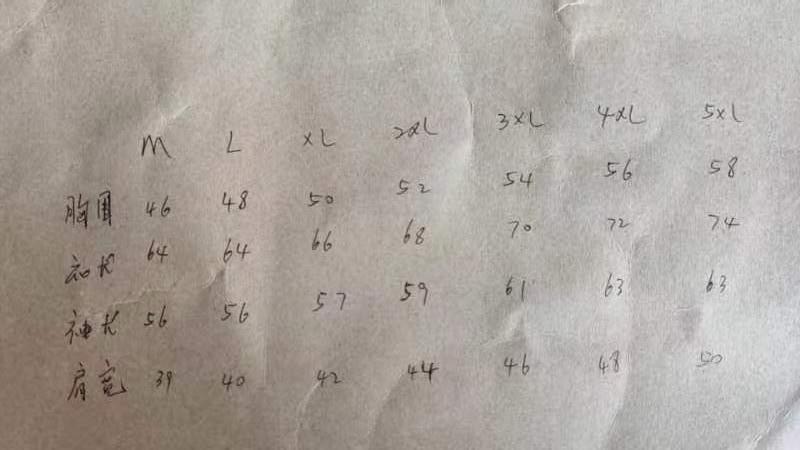 M L XL 2XL 3XL 4XL 5XL
胸围 46 48 50 52 54 56 58
衣长 64 64 66 68 70 72 74
袖长 56 56 57 59 61 63 63
肩宽 39 40 42 44 46 48 50